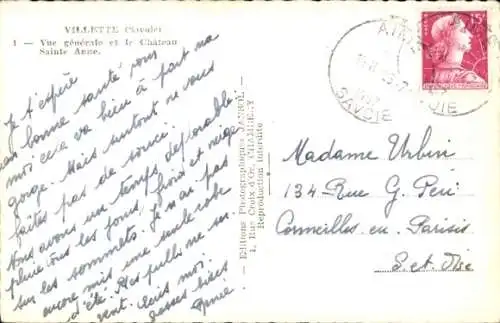 VILLETTE (Savoie)
1 - Vue générale et le Château
Sainte Anne.
Je t'espère
en bonne santé pour
moi cela va bien à part ma
gorge. Mais surtout ne vous
faites pas de souci.
Nous avons un temps déplorable:
pluie tous les jours, froid et neige
sur les sommets. Je n'ai pas
encore mis une seule robe
d'été. Mes pulls me
servent. Ecris moi.
Grosses bises
Editions Photographiques JANSOL
1, Rue Croix d'Or, CHAMBERY
Reproduction interdite
15F
SAVOIE
Madame Urbini
134 Rue G. Peri
Cormeilles en Parisis
S. et Oise